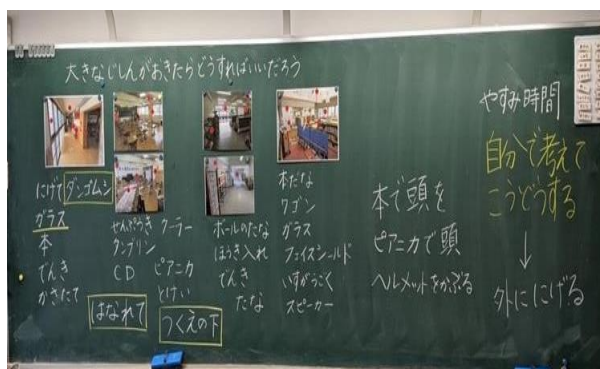 大きなじしんがおきたらどうすればいいだろう
にげて ダンゴムシ
ガラス
本
でんき
かさたて
せんぷうき クーラー
タンブリン
CD ピアニカ
とけい
はなれて
つくえの下
ボールのたな
ほうき入れ
でんき
たな
本だな
ワゴン
ガラス
フェイスシールド
いすがうごく
スピーカー
本で頭を
ピアニカで頭
ヘルメットをかぶる
やすみ時間
自分で考えて
こうどうする
↓
外ににげる